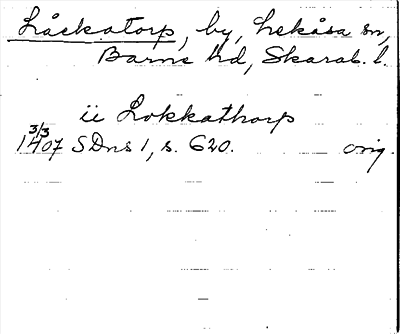 Låckatorp, by, Lekåsa sn,
Barne hd, Skarab. l.
ii Lokkathorp
3/3
1407 SDns 1, s. 620. orig.